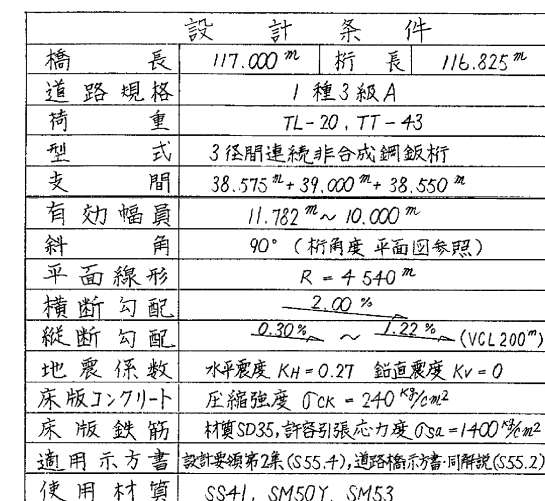 設計条件
橋長 117.000m 桁長 116.825m
道路規格 1種3級A
荷重 TL-20, TT-43
型式 3径間連続非合成鋼鈑桁
支間 38.575m+39.000m+38.550m
有効幅員 11.782m～10.000m
斜角 90°（桁角度 平面図参照）
平面線形 R=4540m
横断勾配 2.00%
縦断勾配 0.30% ～ 1.22% (VCL200m)
地震係数 水平震度 KH=0.27 鉛直震度 KV=0
床版コンクリート 圧縮強度 σCK=240kg/cm2
床版鉄筋 材質SD35,許容引張応力度σsa=1400kg/cm2
適用示方書 設計要領第2集(S55.4),道路橋示方書・同解説(S55.2)
使用材質 SS41, SM50Y, SM53